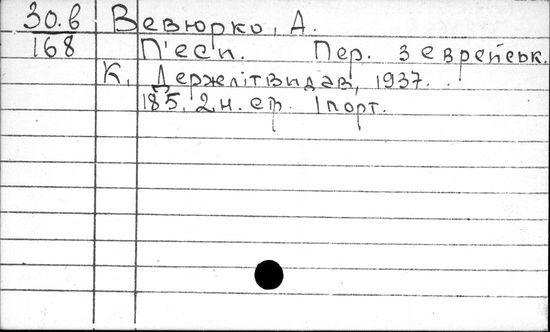 30.в Вевюрко, А.
168 П'еси. Пер. з еврейськ.
К. Держлітвидав, 1937.
185, 2 н. ст. 1 порт.